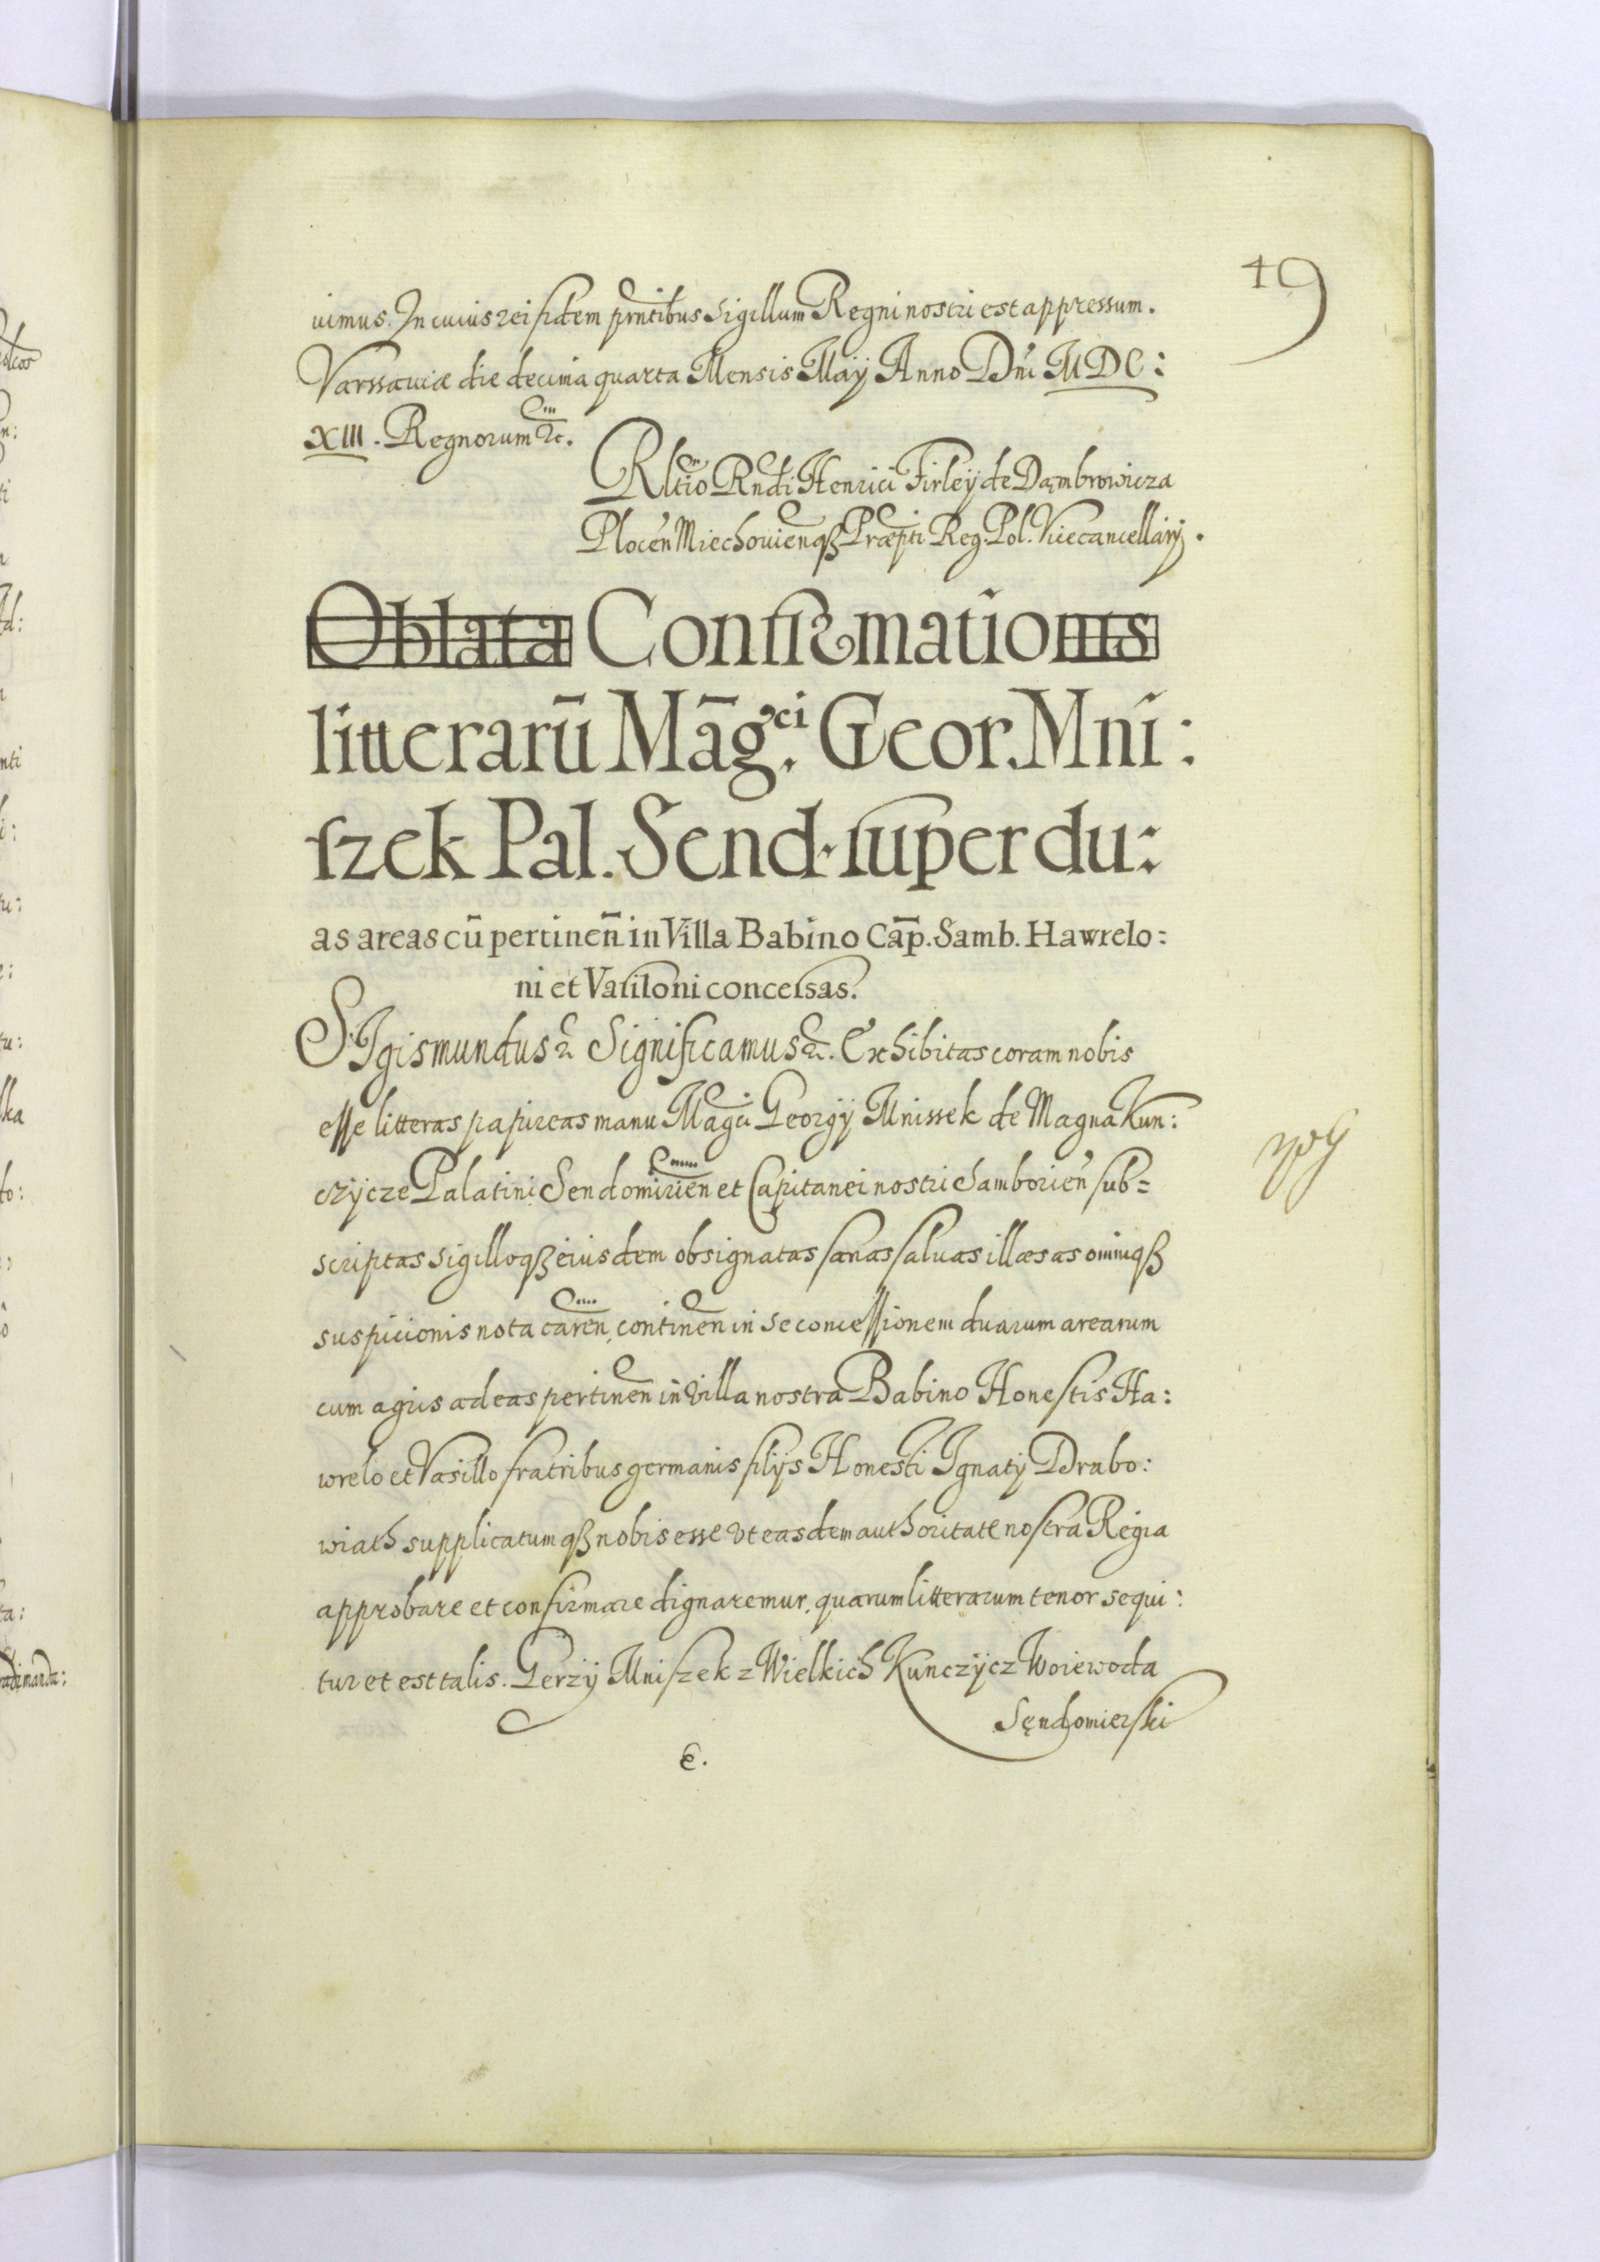 19
uimus. In cuius rei fidem pñtibus Sigillum Regni nostri est appressum.
Varssauiæ die decima quarta Mensis Maÿ Anno Dñi MDC:
XIII. Regnorum &c.
Rltio Rndi Henrici Firleÿ de Dąmbrowicza
Plocen̄ Miechouien̄qꝫ Præpti Reg. Pol. Vicecancellarÿ.
Oblata Confirmationis
litterarū Māg.ci Geor. Mni:
szek Pal. Send. super du:
as areas cū pertinen̄ in Villa Babino Cap̄. Samb. Hawrelo:
ni et Vasiloni concessas.
SIgismundus &c. Significamus &c. Exhibitas coram nobis
esse litteras papireas manu Magci Georgÿ Mnissek de Magna Kun:
czÿcze Palatini Sendomirien̄ et Capitanei nostri Samborien̄ sub=
scriptas Sigilloqꝫ eiusdem obsignatas sanas saluas illæsas omniqꝫ
suspicionis nota caren̄, continen̄ in se concessionem duarum arearum
cum agris ad eas pertinen̄ in Villa nostra Babino Honestis Ha:
wrelo et Vasillo fratribus germanis filÿs Honesti Ignatÿ Drabo:
wiath supplicatumqꝫ nobis esse vt easdem authoritate nostra Regia
approbare et confirmare dignaremur, quarum litterarum tenor sequi:
tur et est talis. Gerzÿ Mniszek z Wielkich Kunczÿcz Woiewoda
Sęndomierski